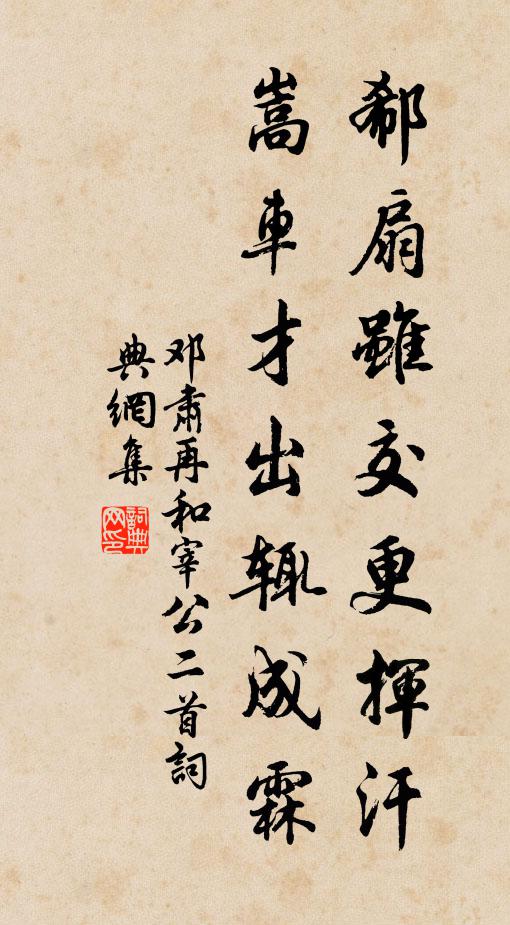 郗扇雖交更揮汗
嵩車才出輒成霖
邓肅再和宰公二首詞
典網集
詞典网印